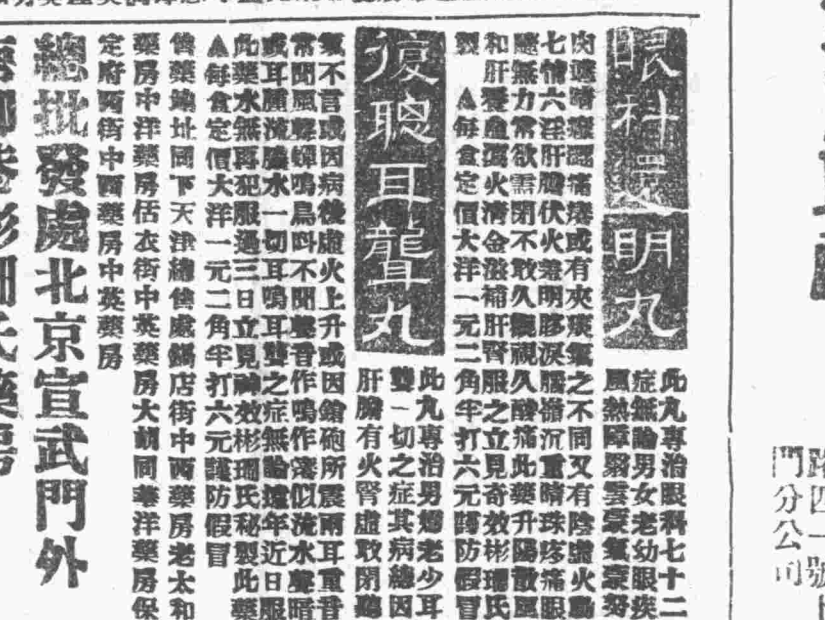 眼科還明丸
此丸專治眼科七十二
症無論男女老幼眼疾
風熱障翳雲蒙氣蒙努
肉遮睛癮澀痛癢或有夾痰氣之不同又有陰虛火動
七情六淫肝膽伏火羞明膠淚腦巔沉重睛珠疼痛眼
無力常欲閉不敢久視視久酸痛此藥升陽散風
和肝養血瀉火清金滋補肝腎服之立見奇效彬瑞氏
製 ▲每盒定價大洋一元二角半打六元謹防假冒
復聰耳聾丸
此丸專治男婦老少耳
聾一切之症其病總因
肝膽有火腎虛敢閉聽
氣不言或因病後虛火上升或因鎗砲所震兩耳重聽
常聞風聲蟬鳴鳥叫不聞聲音作鳴作似流水聲暗
或耳腫流膿水一切耳鳴耳聾之症無論遠年近日服
此藥水無再犯服過三日立見神效彬瑞氏秘製此藥
▲每盒定價大洋一元二角半打六元謹防假冒
售藥鋪址國下天津總售處鍋店街中西藥房老太和
藥房中洋藥房估衣街中英藥房大胡同華洋藥房保
定府西街中西藥房中英藥房
總批發處北京宣武門外
路四一號
門分公司